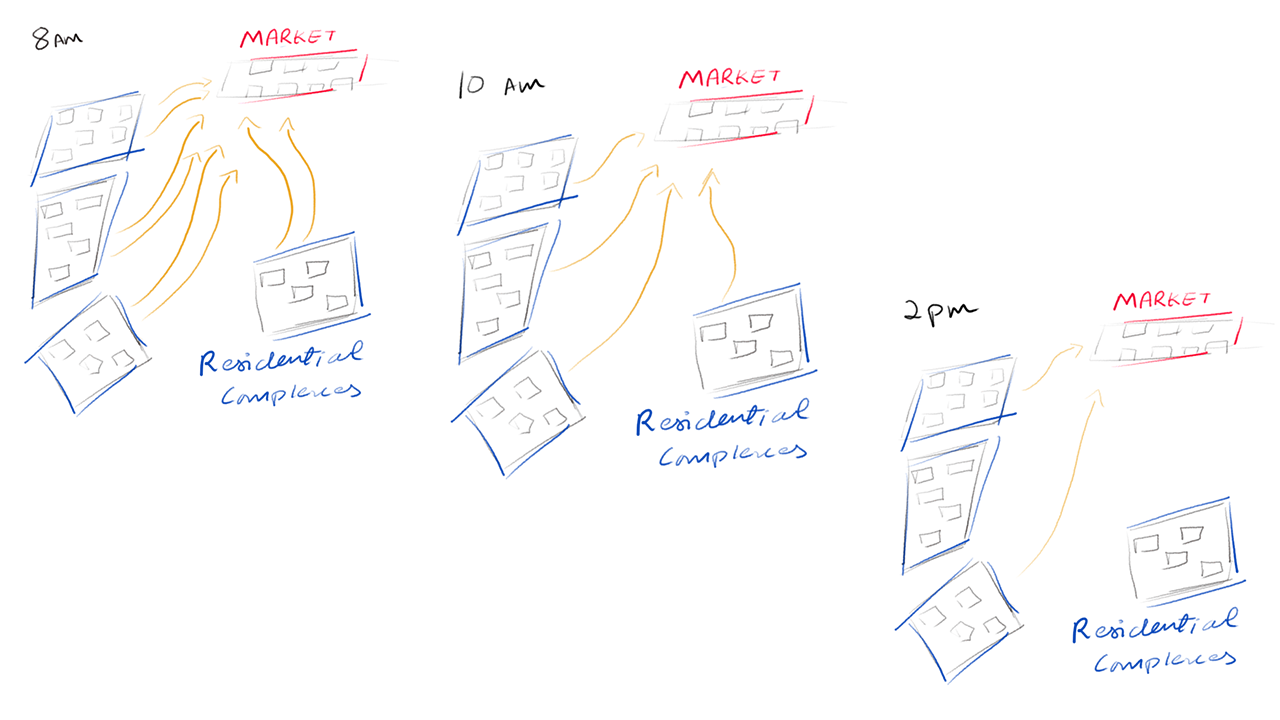 8AM
MARKET
Residential
Complexes
10 AM
MARKET
Residential
Complexes
2pm
MARKET
Residential
Complexes